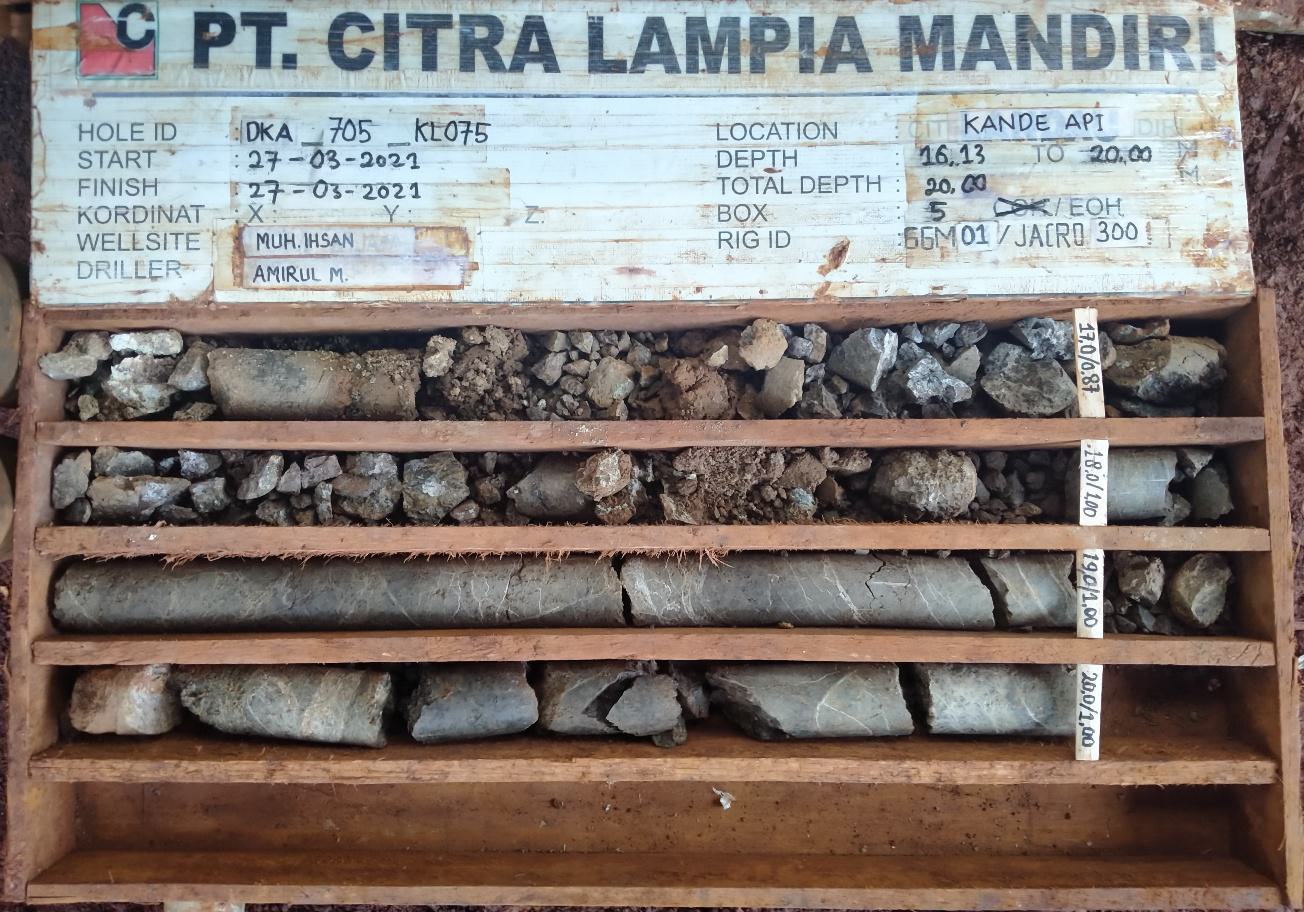 C PT. CITRA LAMPIA MANDIRI
HOLE ID : DKA _ 705 _ KL075
START : 27-03-2021
FINISH : 27-03-2021
KORDINAT X: Y: Z:
WELLSITE MUH.IHSAN
DRILLER AMIRUL M.
LOCATION : KANDE API
DEPTH : 16.13 TO 20.00 M
TOTAL DEPTH : 20.00 M
BOX 5 / EOH
RIG ID : GGM01 / JACRO 300
17.0/0.87
18.0/1.00
19.0/1.00
20.0/1.00